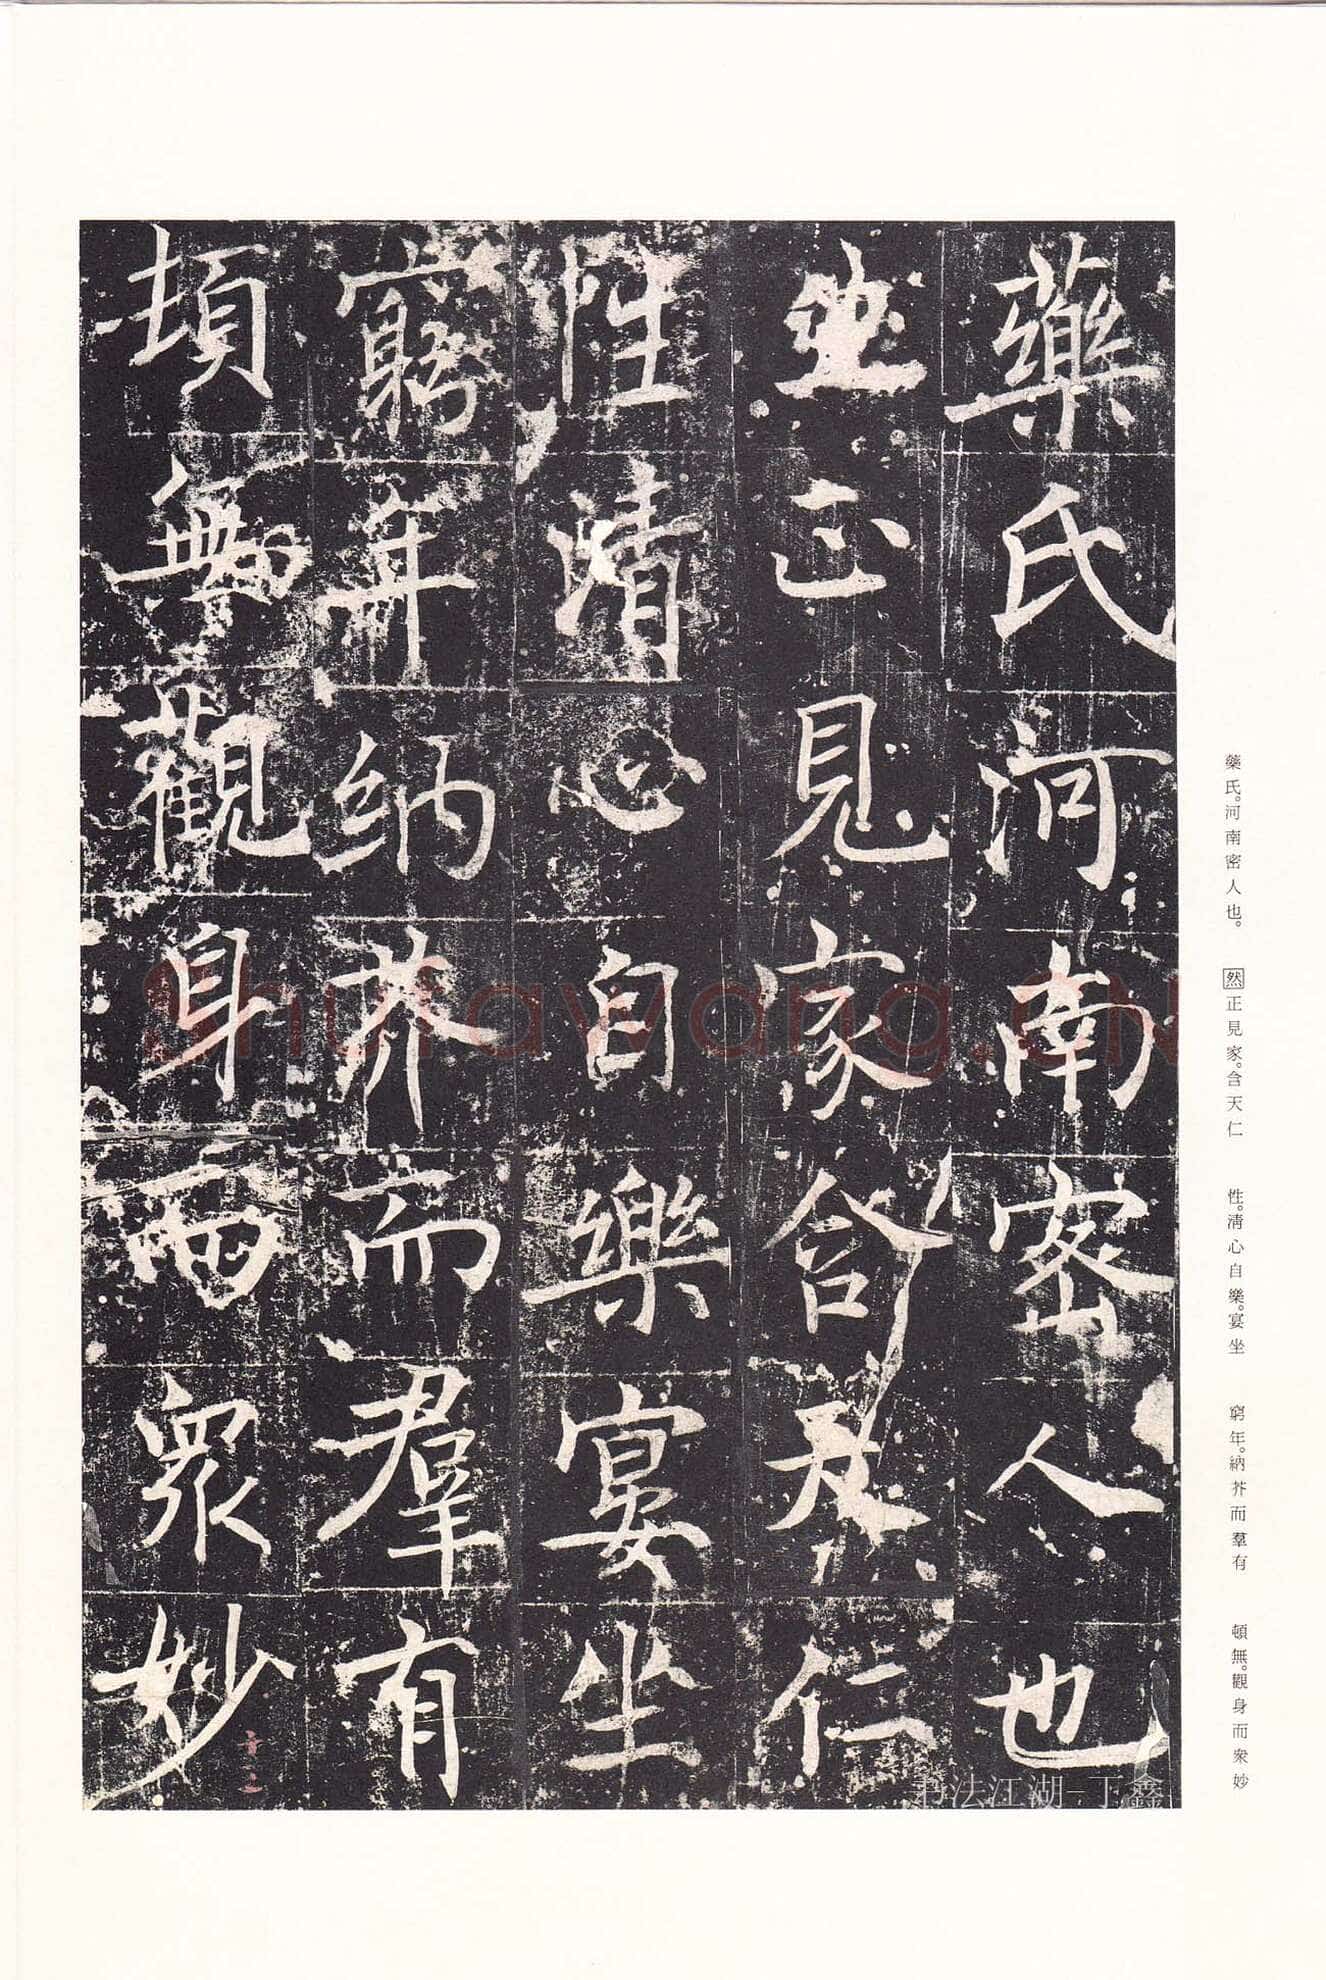 藥氏河南密人也
正見家含天仁
性清心自樂宴坐
窮年納芥而羣有
頓無觀身而衆妙
藥氏。河南密人也。
然正見家。含天仁
性。清心自樂。宴坐
窮年。納芥而羣有
頓無。觀身而衆妙
shufawang.CN
书法江湖-丁鑫